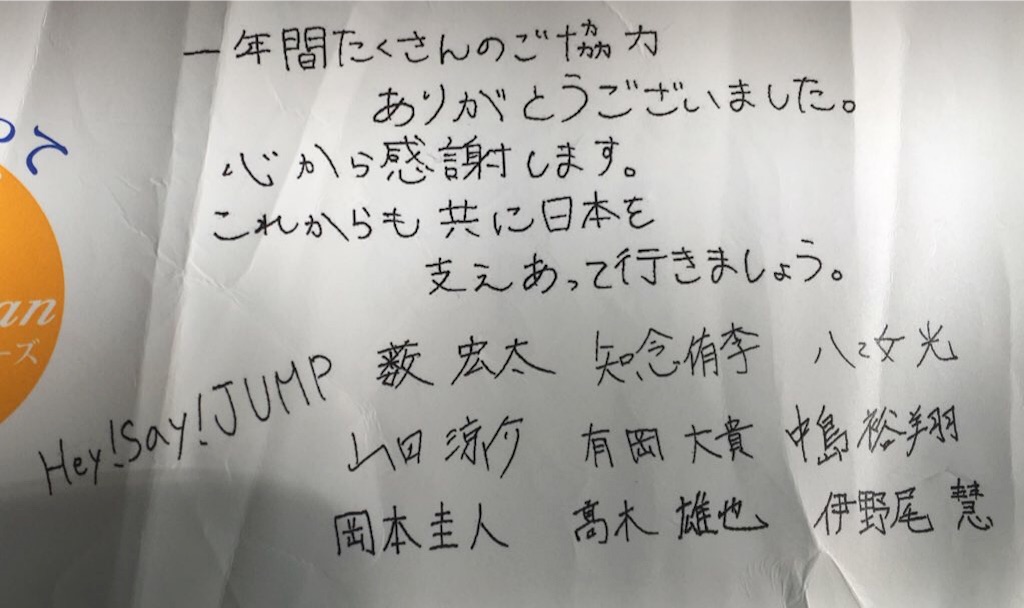 一年間たくさんのご協力
ありがとうございました。
心から感謝します。
これからも共に日本を
支えあって行きましょう。
って
an
ーズ
Hey!Say!JUMP
薮 宏太 知念侑李 八乙女 光
山田 涼介 有岡 大貴 中島裕翔
岡本圭人 髙木 雄也 伊野尾 慧